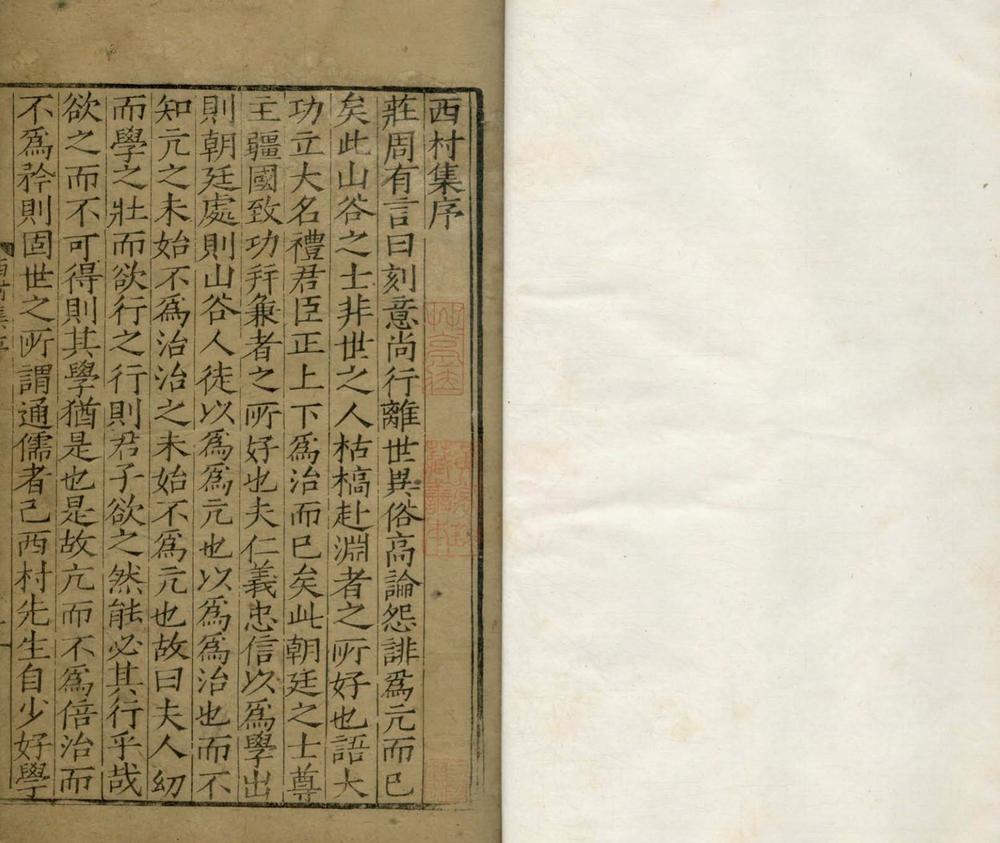 西村集序
莊周有言曰刻意尚行離世異俗高論怨誹爲亢而已
矣此山谷之士非世之人枯槁赴淵者之所好也語大
功立大名禮君臣正上下爲治而已矣此朝廷之士尊
主疆國致功幷兼者之所好也夫仁義忠信以爲學出
則朝廷處則山谷人徒以爲爲亢也以爲爲治也而不
知亢之未始不爲治治之未始不爲亢也故曰夫人幼
而學之壯而欲行之行則君子欲之然能必其行乎哉
欲之而不可得則其學猶是也是故亢而不爲倍治而
不爲矜則固世之所謂通儒者已西村先生自少好學
西村集序